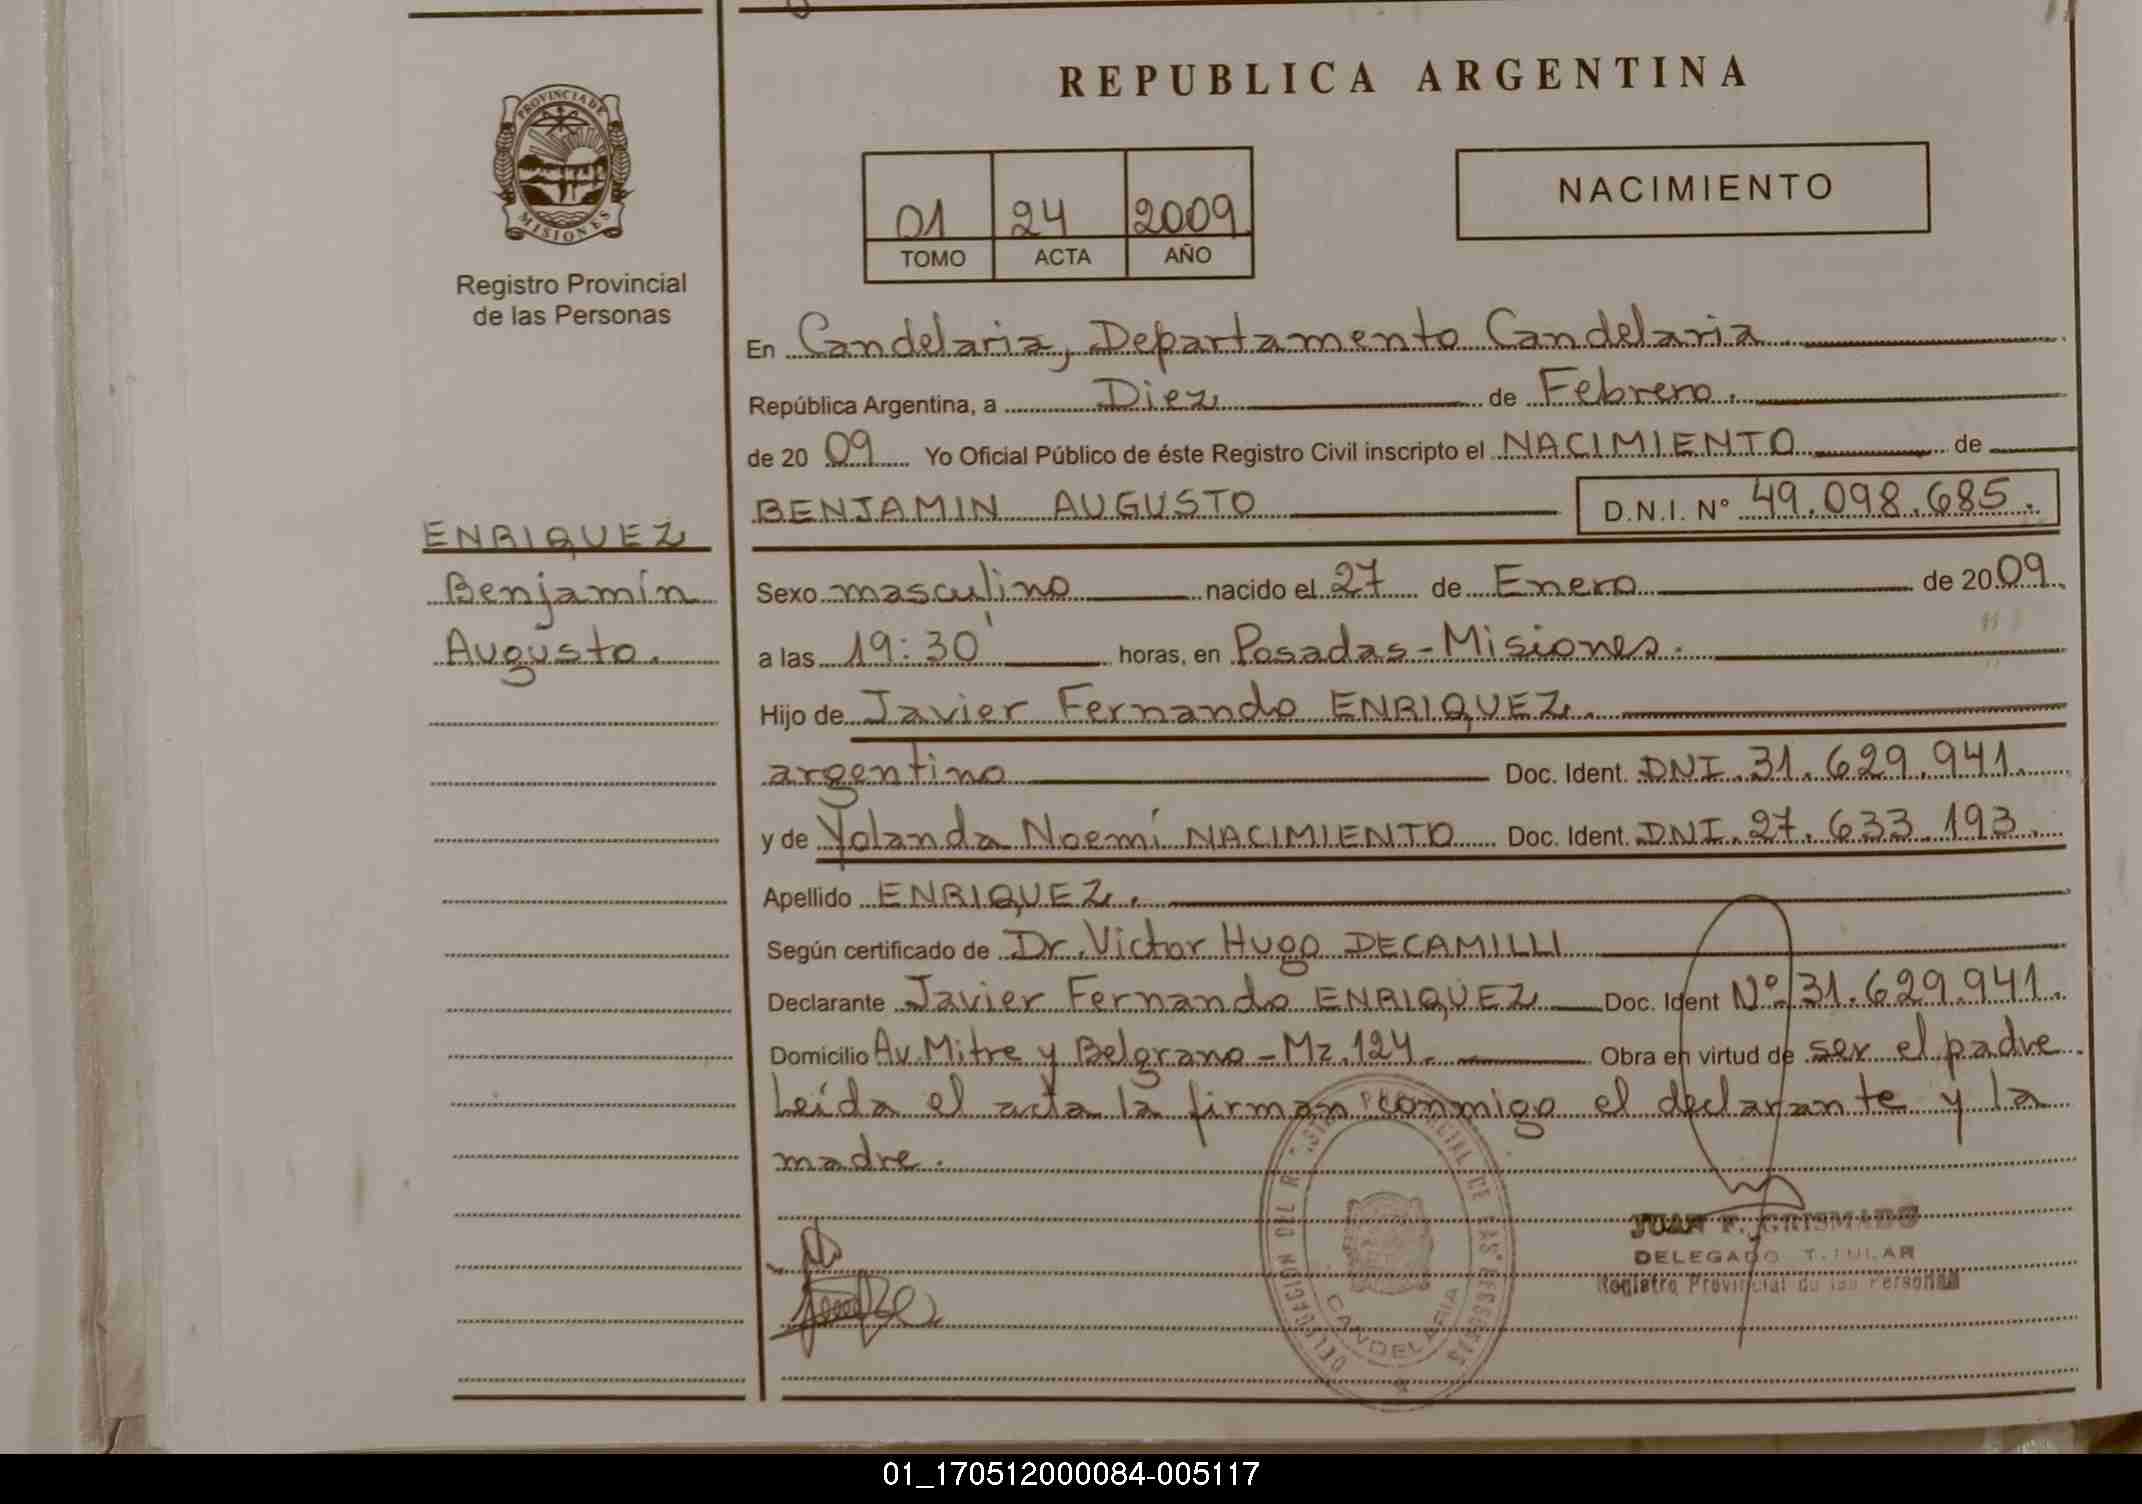 REPUBLICA ARGENTINA
PROVINCIA DE
MISIONES
Registro Provincial
de las Personas
NACIMIENTO
01 24 2009
TOMO ACTA AÑO
En Candelaria, Departamento Candelaria
República Argentina, a Diez de Febrero.
de 20 09 Yo Oficial Público de éste Registro Civil inscripto el NACIMIENTO de
BENJAMIN AUGUSTO D.N.I. Nº 49.098.685.
ENRIQUEZ
Benjamín
Augusto.
Sexo masculino nacido el 27 de Enero de 20 09
a las 19:30' horas, en Posadas - Misiones.
Hijo de Javier Fernando ENRIQUEZ.
argentino Doc. Ident. DNI. 31.629.941.
y de Yolanda Noemí NACIMIENTO Doc. Ident. DNI. 27.633.193.
Apellido ENRIQUEZ.
Según certificado de Dr. Victor Hugo DECAMILLI
Declarante Javier Fernando ENRIQUEZ Doc. Ident Nº 31.629.941.
Domicilio Av. Mitre y Belgrano - Mz. 124. Obra en virtud de ser el padre
Leída el acta la firman conmigo el declarante y la
madre.
JUAN F. CRISMADO
DELEGADO TITULAR
Registro Provincial de las Personas
DELEGACION DEL PROVINCIAL DE LAS PERSONAS
CANDELARIA
01_170512000084-005117